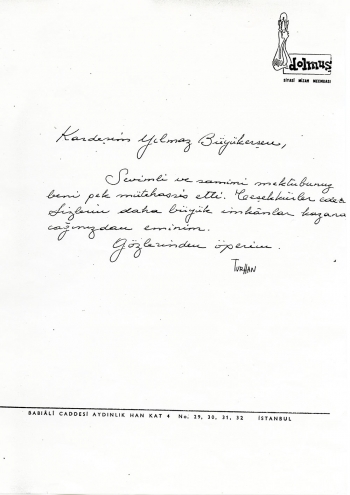 dolmuş
SİYASİ MİZAH MECMUASI
Kardeşim Yılmaz Büyükerşen,
Sevimli ve samimi mektubunuz
beni pek mütehassis etti. Teşekkürler ederim
Sizlerin daha büyük imkânlar kazana
cağınızdan eminim.
Gözlerinden öperim.
TURHAN
BABIÂLİ CADDESİ AYDINLIK HAN KAT 4 No. 29, 30, 31, 32 İSTANBUL